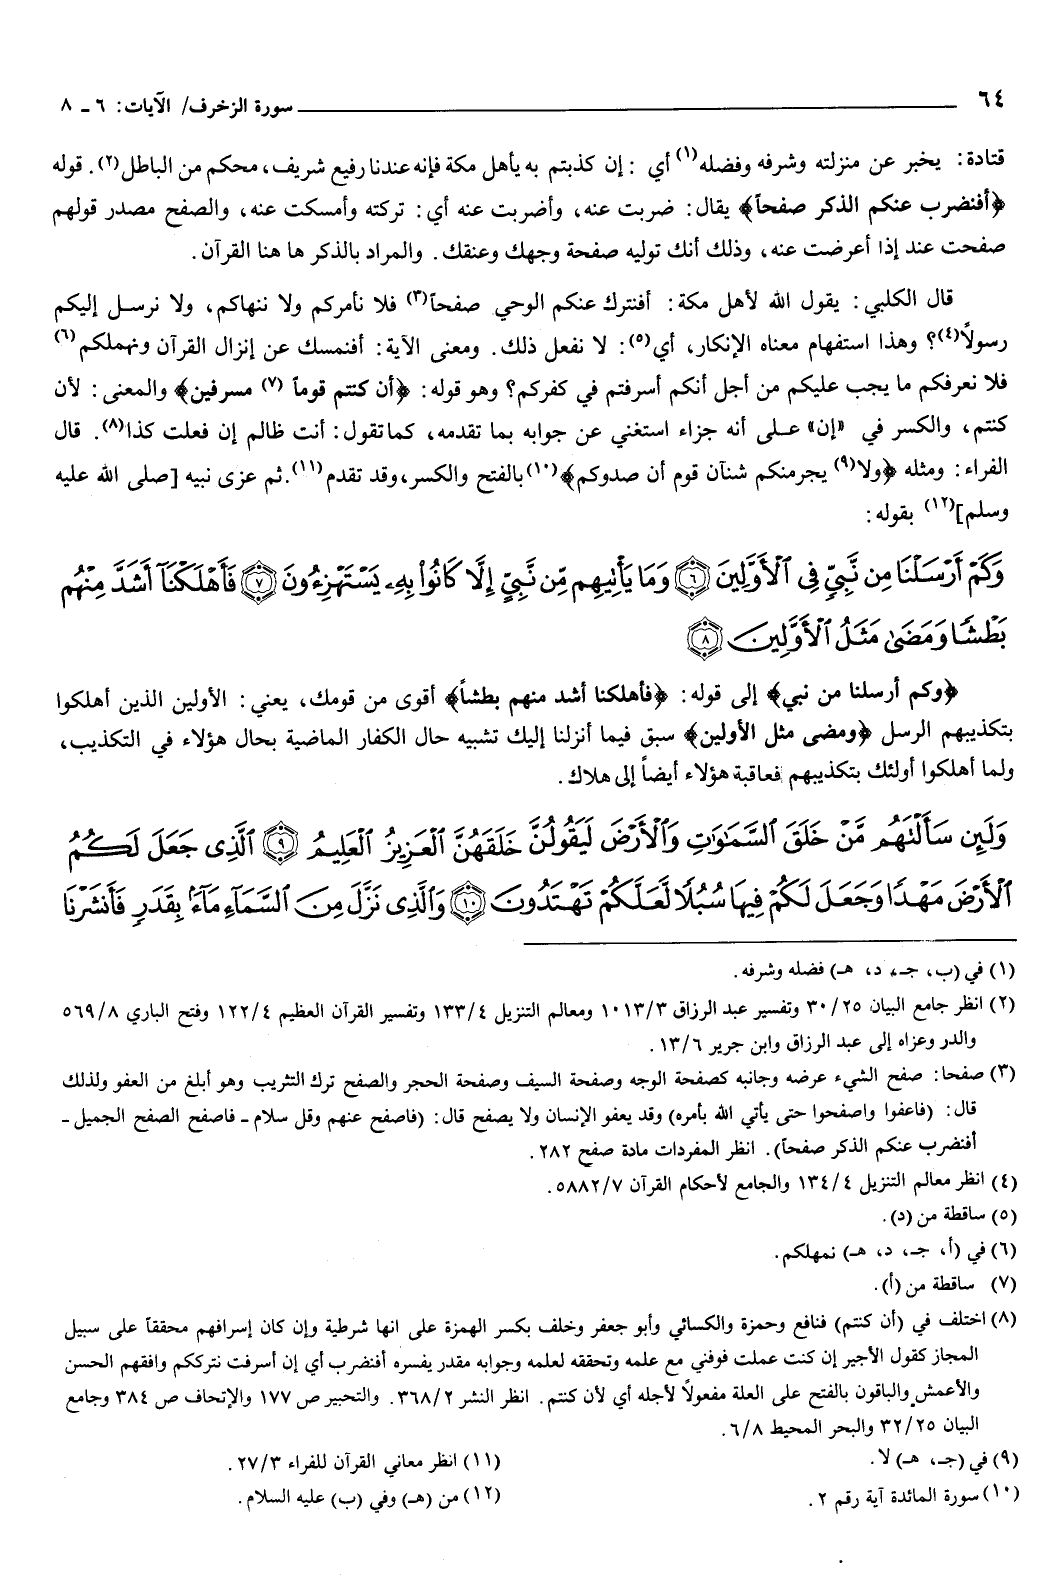 ٦٤ سورة الزخرف/ الآيات: ٦ - ٨
قتادة: يخبر عن منزلته وشرفه وفضله(١) أي : إن كذبتم به يأهل مكة فإنه عندنا رفيع شريف، محكم من الباطل(٢). قوله
﴿أفنضرب عنكم الذكر صفحاً﴾ يقال: ضربت عنه، وأضربت عنه أي: تركته وأمسكت عنه، والصفح مصدر قولهم
صفحت عند إذا أعرضت عنه، وذلك أنك توليه صفحة وجهك وعنقك. والمراد بالذكر ها هنا القرآن.
قال الكلبي: يقول الله لأهل مكة: أفنترك عنكم الوحي صفحاً(٣) فلا نأمركم ولا ننهاكم، ولا نرسل إليكم
رسولاً(٤)؟ وهذا استفهام معناه الإنكار، أي(٥): لا نفعل ذلك. ومعنى الآية: أفنمسك عن إنزال القرآن ونهملكم(٦)
فلا نعرفكم ما يجب عليكم من أجل أنكم أسرفتم في كفركم؟ وهو قوله: ﴿أن كنتم قوماً (٧) مسرفين﴾ والمعنى: لأن
كنتم، والكسر في «إن» على أنه جزاء استغني عن جوابه بما تقدمه، كما تقول: أنت ظالم إن فعلت كذا(٨). قال
الفراء: ومثله ﴿ولا(٩) يجرمنكم شنآن قوم أن صدوكم﴾(١٠) بالفتح والكسر، وقد تقدم(١١). ثم عزى نبيه [صلى الله عليه
وسلم](١٢) بقوله:
وَكَمْ أَرْسَلْنَا مِن نَّبِيٍّ فِي الْأَوَّلِينَ ۝٦ وَمَا يَأْتِيهِم مِّن نَّبِيٍّ إِلَّا كَانُوا بِهِ يَسْتَهْزِءُونَ ۝٧ فَأَهْلَكْنَا أَشَدَّ مِنْهُم
بَطْشًا وَمَضَىٰ مَثَلُ الْأَوَّلِينَ ۝٨
﴿وكم أرسلنا من نبي﴾ إلى قوله: ﴿فأهلكنا أشد منهم بطشاً﴾ أقوى من قومك، يعني: الأولين الذين أهلكوا
بتكذيبهم الرسل ﴿ومضى مثل الأولين﴾ سبق فيما أنزلنا إليك تشبيه حال الكفار الماضية بحال هؤلاء في التكذيب،
ولما أهلكوا أولئك بتكذيبهم فعاقبة هؤلاء أيضاً إلى هلاك.
وَلَئِن سَأَلْتَهُم مَّنْ خَلَقَ السَّمَٰوَٰتِ وَالْأَرْضَ لَيَقُولُنَّ خَلَقَهُنَّ الْعَزِيزُ الْعَلِيمُ ۝٩ الَّذِي جَعَلَ لَكُمُ
الْأَرْضَ مَهْدًا وَجَعَلَ لَكُمْ فِيهَا سُبُلًا لَّعَلَّكُمْ تَهْتَدُونَ ۝١٠ وَالَّذِي نَزَّلَ مِنَ السَّمَاءِ مَاءً بِقَدَرٍ فَأَنشَرْنَا
(١) في (ب، جـ، د، هـ) فضله وشرفه.
(٢) انظر جامع البيان ٣٠/٢٥ وتفسير عبد الرزاق ١٠١٣/٣ ومعالم التنزيل ١٣٣/٤ وتفسير القرآن العظيم ١٢٢/٤ وفتح الباري ٥٦٩/٨
والدر وعزاه إلى عبد الرزاق وابن جرير ١٣/٦.
(٣) صفحا: صفح الشيء عرضه وجانبه كصفحة الوجه وصفحة السيف وصفحة الحجر والصفح ترك التثريب وهو أبلغ من العفو ولذلك
قال: (فاعفوا واصفحوا حتى يأتي الله بأمره) وقد يعفو الإنسان ولا يصفح قال: (فاصفح عنهم وقل سلام ـ فاصفح الصفح الجميل ـ
أفنضرب عنكم الذكر صفحاً). انظر المفردات مادة صفح ٢٨٢.
(٤) انظر معالم التنزيل ١٣٤/٤ والجامع لأحكام القرآن ٥٨٨٢/٧.
(٥) ساقطة من (د).
(٦) في (أ، جـ، د، هـ) نمهلكم.
(٧) ساقطة من (أ).
(٨) اختلف في (أن كنتم) فنافع وحمزة والكسائي وأبو جعفر وخلف بكسر الهمزة على انها شرطية وإن كان إسرافهم محققاً على سبيل
المجاز كقول الأجير إن كنت عملت فوفني مع علمه وتحققه لعلمه وجوابه مقدر يفسره أفنضرب أي إن أسرفت نترككم وافقهم الحسن
والأعمش والباقون بالفتح على العلة مفعولاً لأجله أي لأن كنتم. انظر النشر ٣٦٨/٢. والتحبير ص ١٧٧ والإتحاف ص ٣٨٤ وجامع
البيان ٣٢/٢٥ والبحر المحيط ٦/٨.
(٩) في (جـ، هـ) لا.
(١٠) سورة المائدة آية رقم ٢.
(١١) انظر معاني القرآن للفراء ٢٧/٣.
(١٢) من (هـ) وفي (ب) عليه السلام.